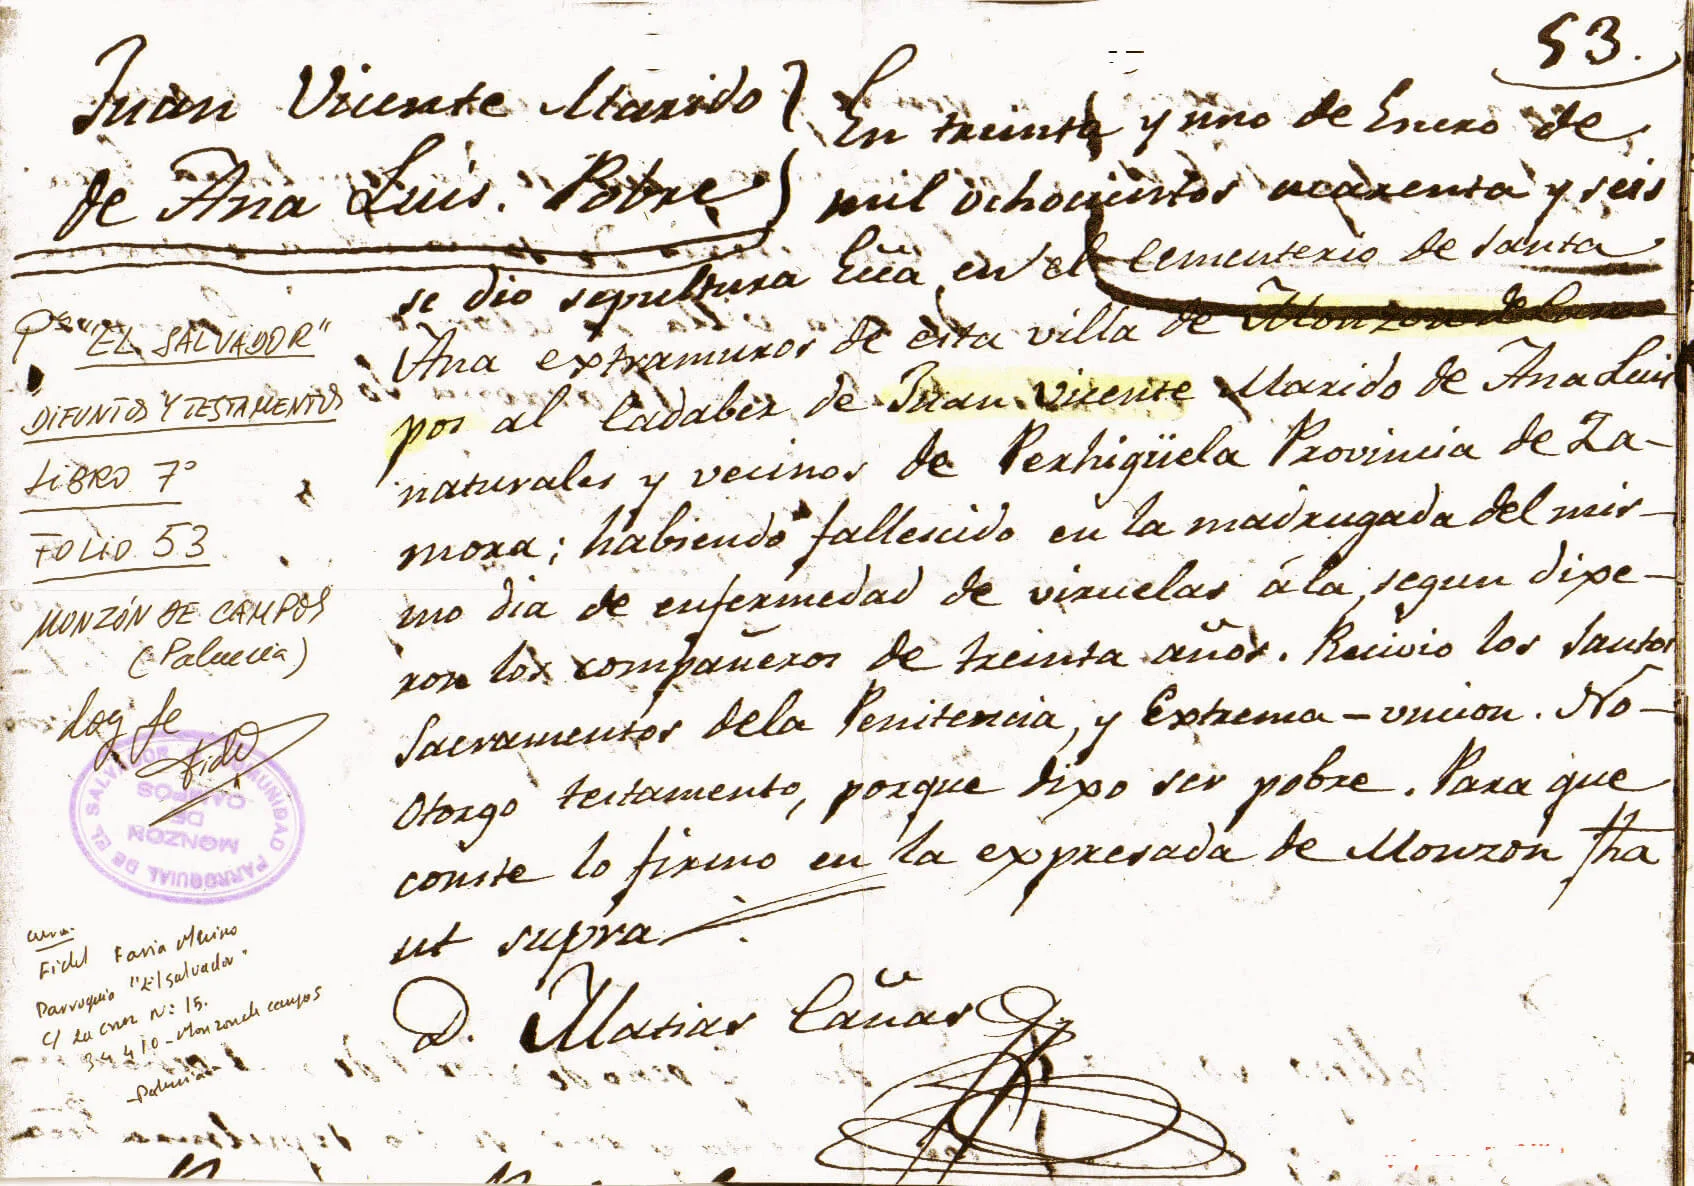 53.
Juan Vicente Marido
de Ana Luis. Pobre
En treinta y uno de Enero de
mil ochocientos cuarenta y seis
se dio sepultura Ecca en el Cementerio de Santa
Ana extramuros de esta villa de Monzon de Cam
pos al Cadaber de Juan Vicente Marido de Ana Luis
naturales y vecinos de Perhigüela Provincia de Za-
mora; habiendo fallescido en la madrugada del mis-
mo dia de enfermedad de viruelas á la, segun dixe-
ron los compañeros de treinta años. Recivio los Santos
Sacramentos dela Penitencia, y Extrema-uncion. No-
Otorgo testamento, porque dixo ser pobre. Para que
conste lo firmo en la expresada de Monzon fha
ut supra
D. Matias Cañas
Pa "EL SALVADOR"
DIFUNTOS Y TESTAMENTOS
LIBRO 7º
FOLIO 53
MONZÓN DE CAMPOS
(Palencia)
Doy fe
Fidel
COMUNIDAD PARROQUIAL DE EL SALVADOR
MONZON
DE
CAMPOS
Fidel Faria Merino
Parroquia "El Salvador"
C/ La Cruz Nº 15.
34410-Monzon de Campos
-Palencia-